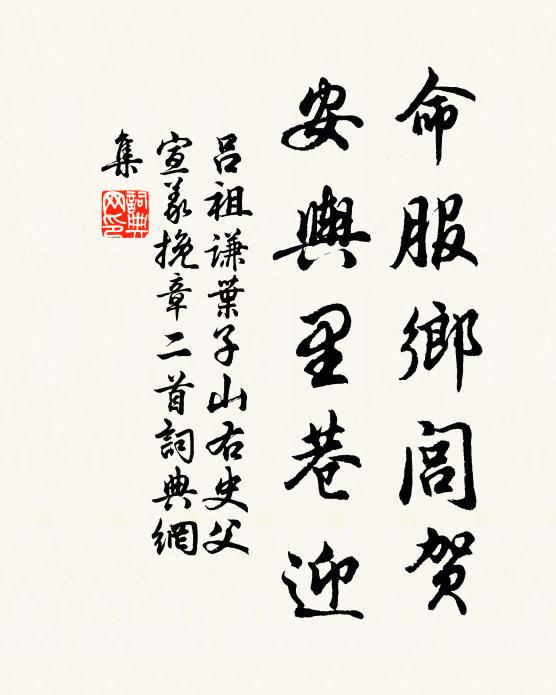 命服鄉閭賀
安輿里巷迎
呂祖謙葉子山右史父
宣義挽章二首詞典網
集
詞典網印